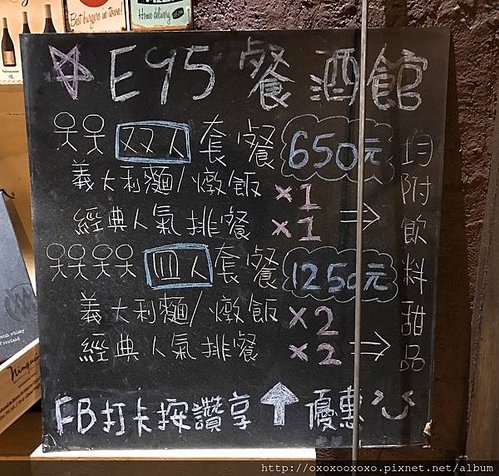 Best burgers in town!
Home delivery
E95 餐酒館
双人套餐 650元
義大利麵/燉飯 ×1
經典人氣排餐 ×1 ⇒
四人套餐 1250元
義大利麵/燉飯 ×2
經典人氣排餐 ×2 ⇒
均附飲料甜品
FB打卡按讚享↑優惠
http://oxoxooxoxo.pixnet.net/album